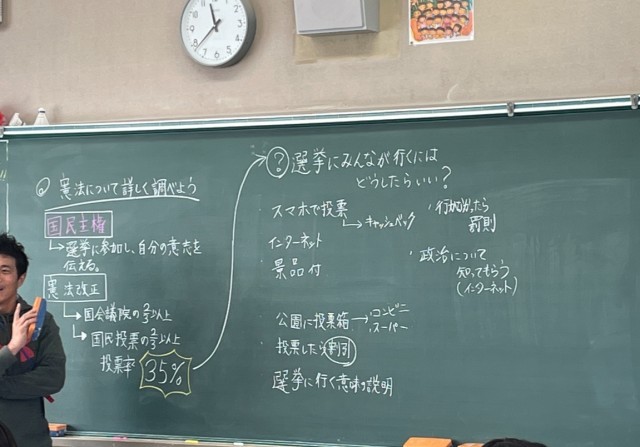 憲法について詳しく調べよう
国民主権
→選挙に参加し、自分の意志を
伝える。
憲法改正
→国会議院の2/3以上
→国民投票の2/3以上
投票率 35%
? 選挙にみんなが行くには
どうしたらいい?
・スマホで投票
→キャッシュバック
・インターネット
・景品付
・公園に投票箱→・コンビニ
・スーパー
・投票したら割引
・選挙に行く意味の説明
・行かなかったら
罰則
・政治について
知ってもらう
(インターネット)